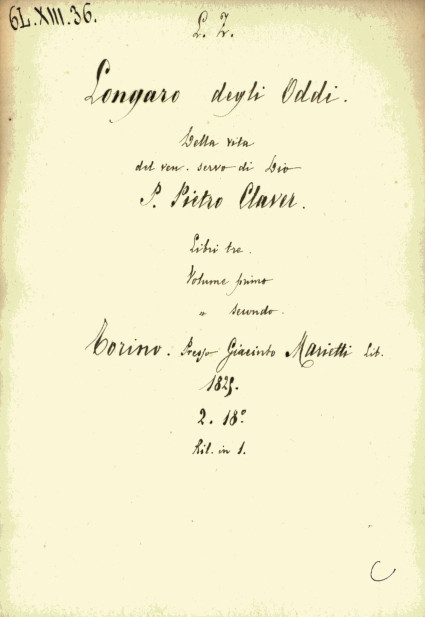 6L.XIII.36.
L. Z.
Longaro degli Oddi.
Della vita
del ven. servo di Dio
P. Pietro Claver.
Libri tre.
Volume primo
" secondo.
Torino. Presso Giacinto Marietti Lib.
1825.
2. 18º
Ril. in 1.
C